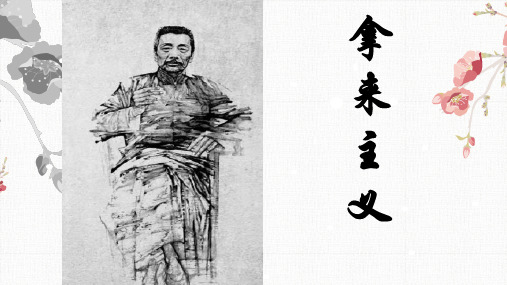 拿来主义